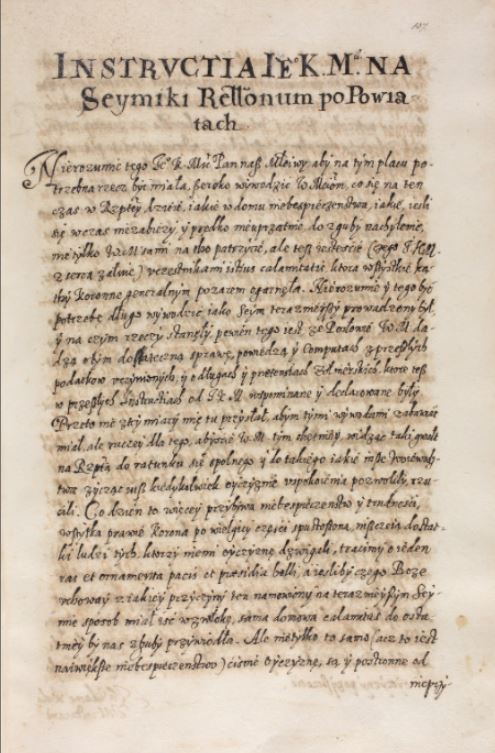 107
INSTRVCTIA IE° K. M.ci NA
Seymiki Rellonum po Powia
tach
Nierozumie tego Je° K. Mć Pan nasz Młciwy aby na tym placu po-
trzebna rzecz być miała, szeroko wywodzić W. Mćiom, co się na ten
czas w Rzptey dzieie, iakie w domu niebespieczenstwa, iakie, iesli
się wczas niezabieży, y prędko nieuprzątnie do zguby nachylenie,
nie tylko W. M. sami na tho patrzycie, ale tesz iestescie (czego J. K. M.
z serca załuie) vczestnikami istius calamitatis ktora wszystkie ką
ty Koronne generalnym pozarem ogarnęła. Nierozumie y tego być
potrzebę długo wywodzic, iako Seym teraznieyszy prowadzony był,
y na czym rzeczy stanęły, pewien tego iest ze Posłowie W. M. da-
dzą o tym dostateczną sprawę, powiedzą y Computach z przeszłych
podatkow vczynionych, y o długach y pretensiach Zołnierskich, ktore tesz
w przeszłych Instructiach od J. K. M. wspominane y declarowane były
Przeto nie z tey miary mię tu przysłał, abym tymi wywodami zabawiać
miał, ale raczey dla tego, abyscie W. M. tym chętniey widząc taki gwałt
na Rzptą do ratunku się spolnego y do takiego iakie
zycząc iusz kiedykolwiek oyczyznie vspokoienia pozwolili, rzu
cili. Co dzien to więcey przybywa niebespieczenstw y trudnosci,
wszytka prawie Korona po wielgiey części spustoszona, niszczeią dostat-
ki ludzi tych, ktorzy niemi oyczyznę dzwigali, tracimy o ieden
raz et ornamenta pacis et præsidia belli, a iesliby czego Boze
vchoway z iakiey przyczyny ten namowiony na teraznieyszym Sey-
mie sposob miał iść w zwłokę, sama domowa calamitas do osta
tniey by nas zguby przywiodła. Ale nietylko to samo (acz to iest
naiwiększe niebespieczenstwo) cisnie Oyczyznę, są y postronne od
nieprzy